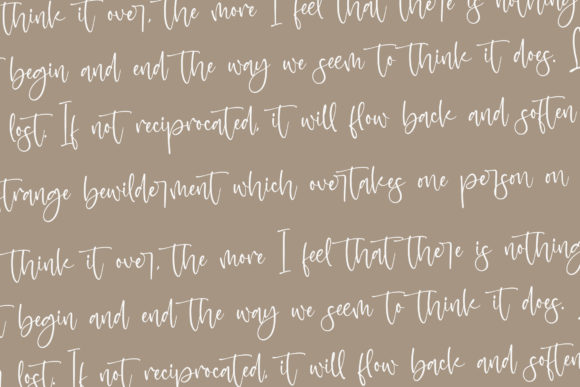 think it over, the more I feel that there is nothing
begin and end the way we seem to think it does.
lost. If not reciprocated, it will flow back and soften
strange bewilderment which overtakes one person on
think it over, the more I feel that there is nothing
begin and end the way we seem to think it does.
lost. If not reciprocated, it will flow back and soften